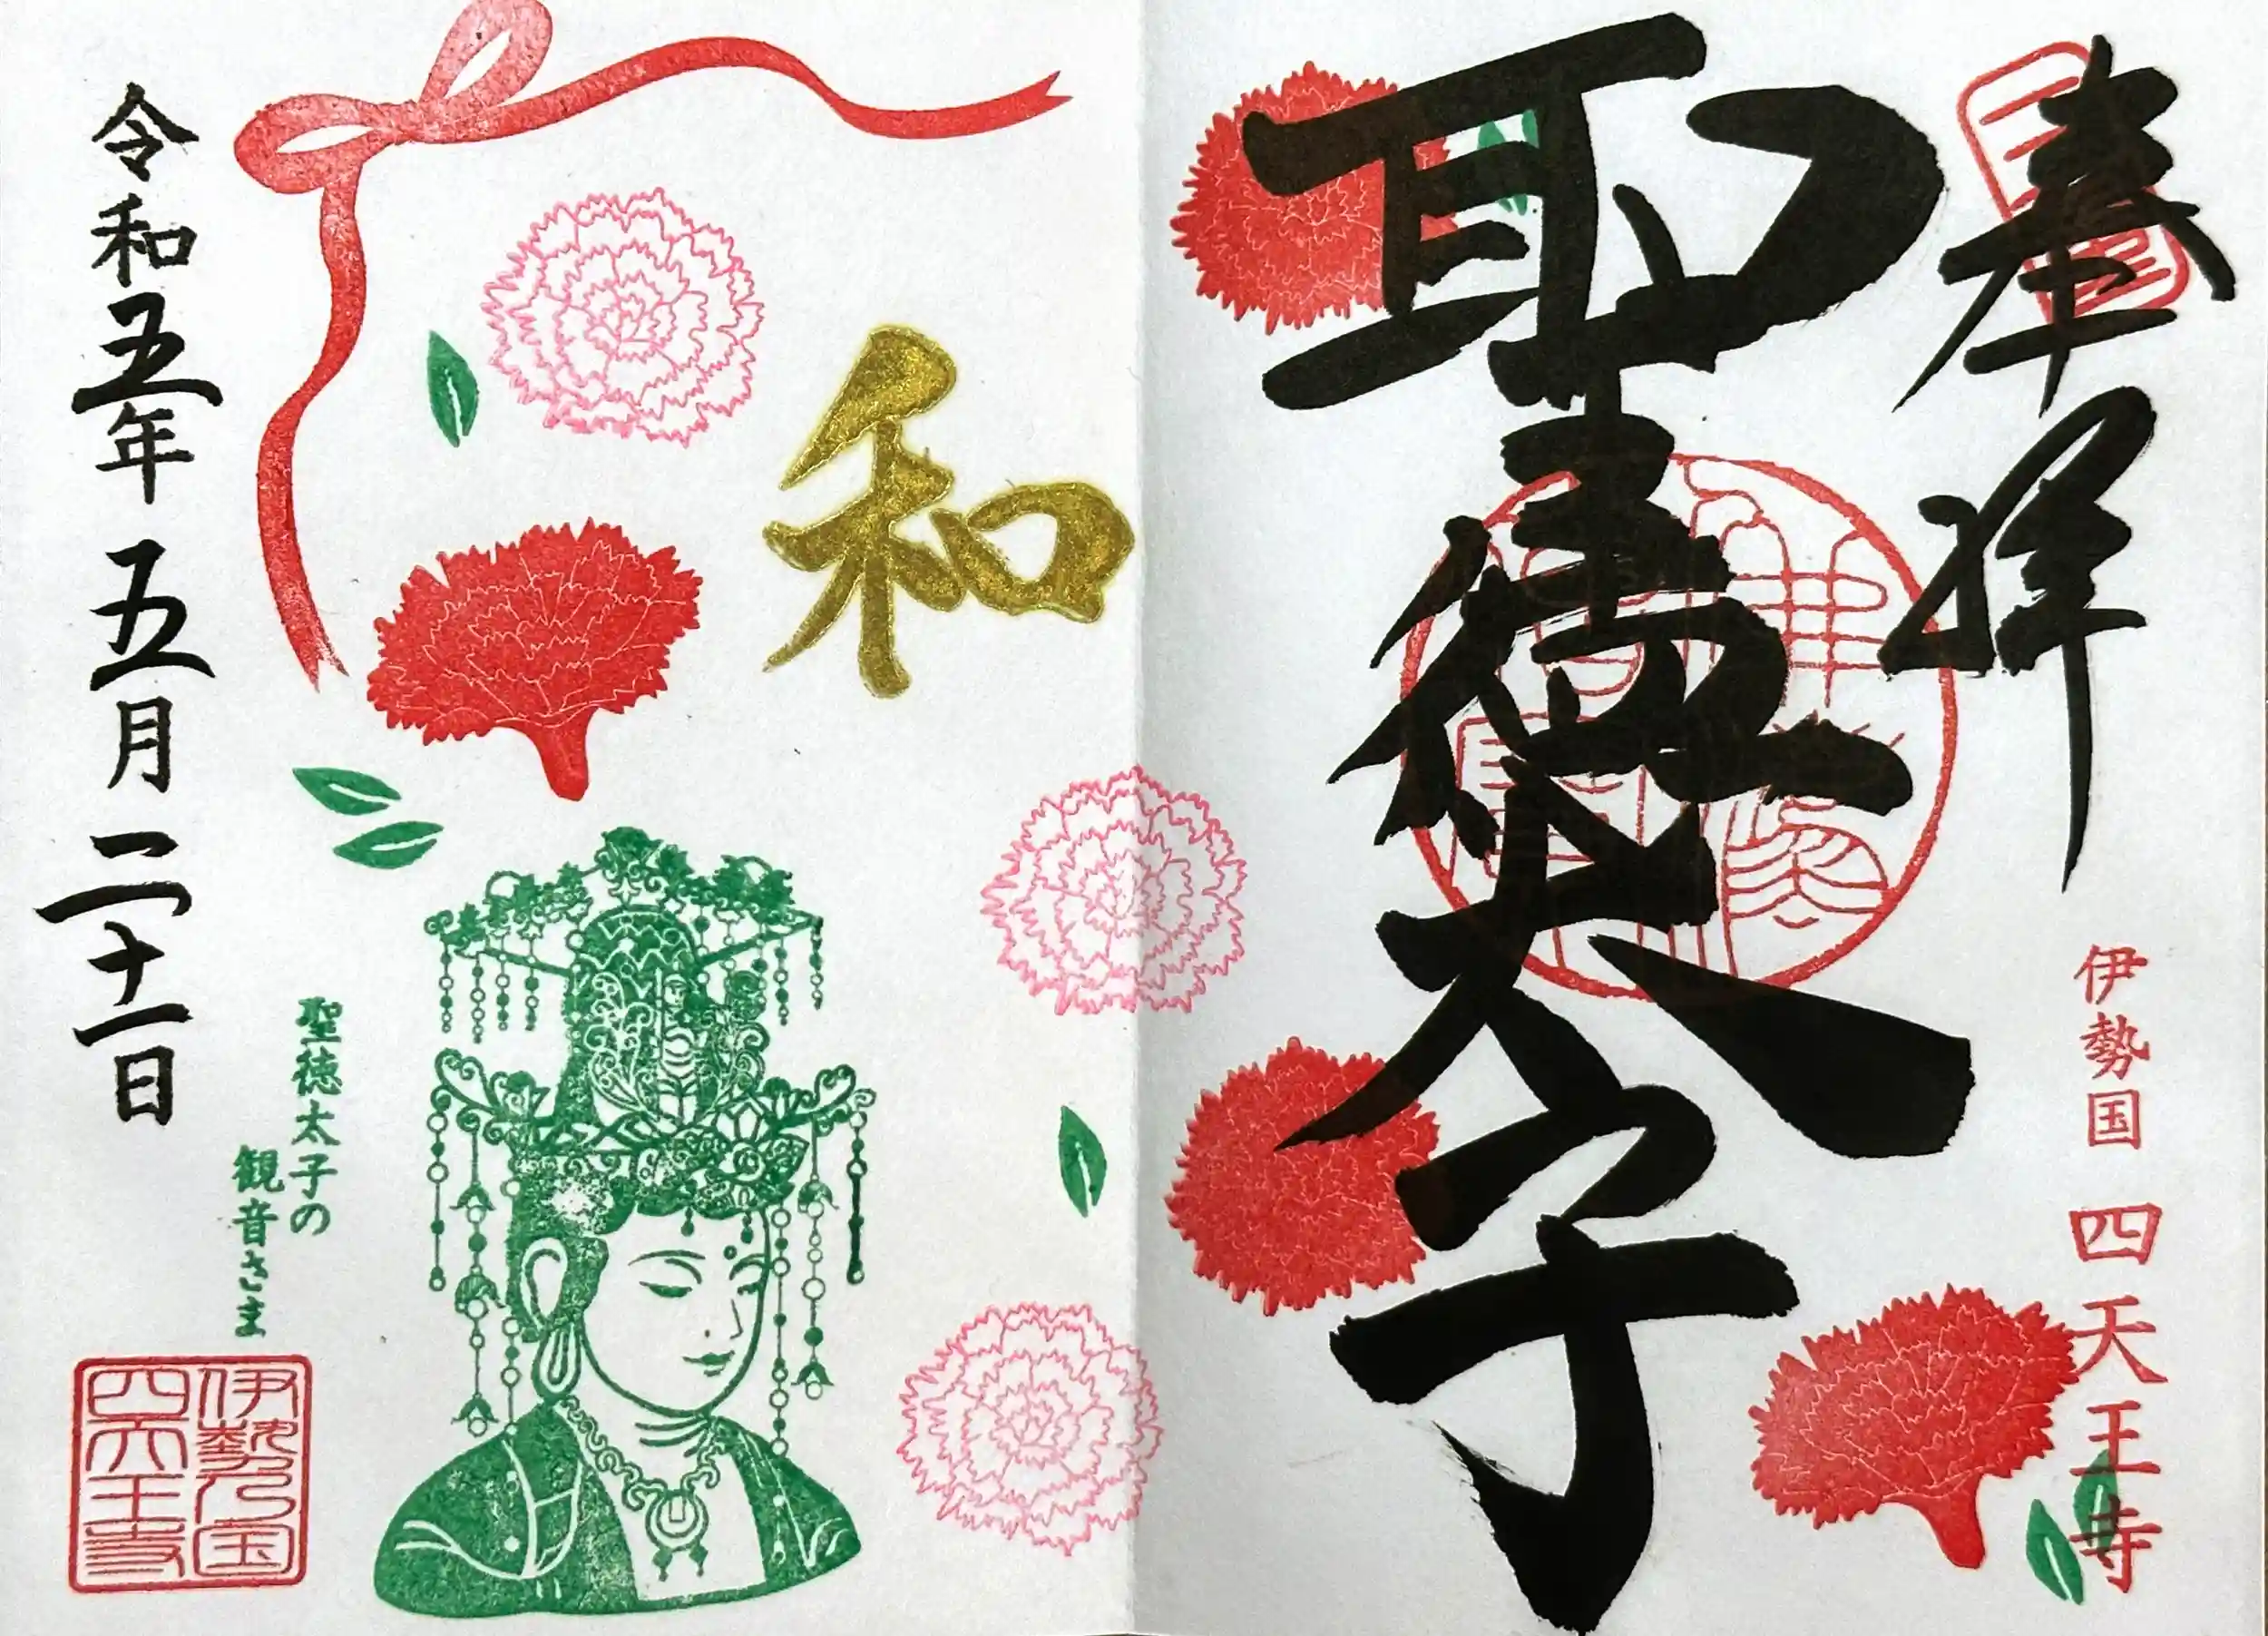 奉拝
聖徳太子
伊勢国 四天王寺
和
聖徳太子の
観音さま
令和五年 五月 二十一日
伊勢乃国
四天王寺